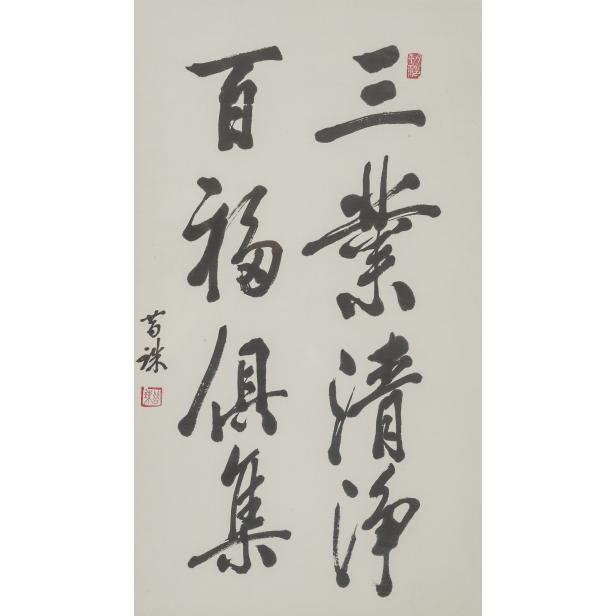 三業清淨
百福俱集
昔珠